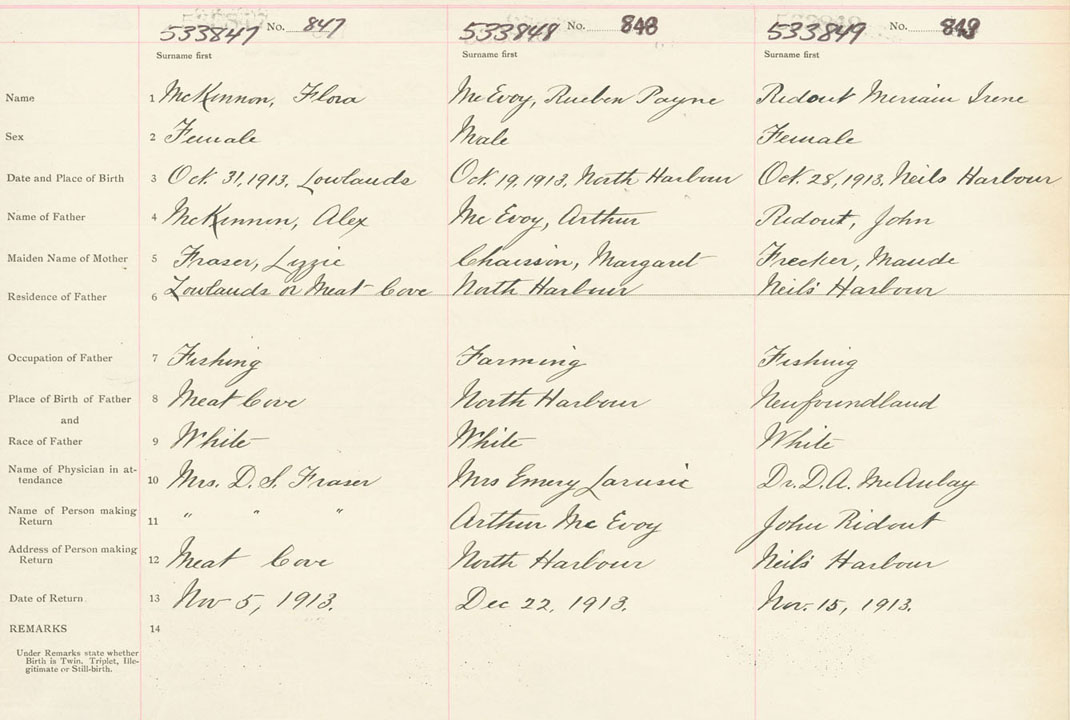 533847 No. 847 533848 No. 848 533849 No. 849
Surname first Surname first Surname first
Name 1 McKinnon, Flora McEvoy, Rueben Payne Ridout Meriam Irene
Sex 2 Female Male Female
Date and Place of Birth 3 Oct. 31, 1913, Lowlands Oct. 19, 1913, North Harbour Oct. 28, 1913, Neils Harbour
Name of Father 4 McKinnon, Alex McEvoy, Arthur Ridout, John
Maiden Name of Mother 5 Fraser, Lizzie Chaisson, Margaret Frecker, Maude
Residence of Father 6 Lowlands or Meat Cove North Harbour Neil's Harbour
Occupation of Father 7 Fishing Farming Fishing
Place of Birth of Father 8 Meat Cove North Harbour Newfoundland
and
Race of Father 9 White White White
Name of Physician in at-
tendance 10 Mrs. D. S. Fraser Mrs Emery Larusic Dr. D.A. McAulay
Name of Person making
Return 11 " " " Arthur McEvoy John Ridout
Address of Person making
Return 12 Meat Cove North Harbour Neil's Harbour
Date of Return 13 Nov 5, 1913. Dec 22, 1913. Nov. 15, 1913.
REMARKS 14
Under Remarks state whether
Birth is Twin, Triplet, Ille-
gitimate or Still-birth.